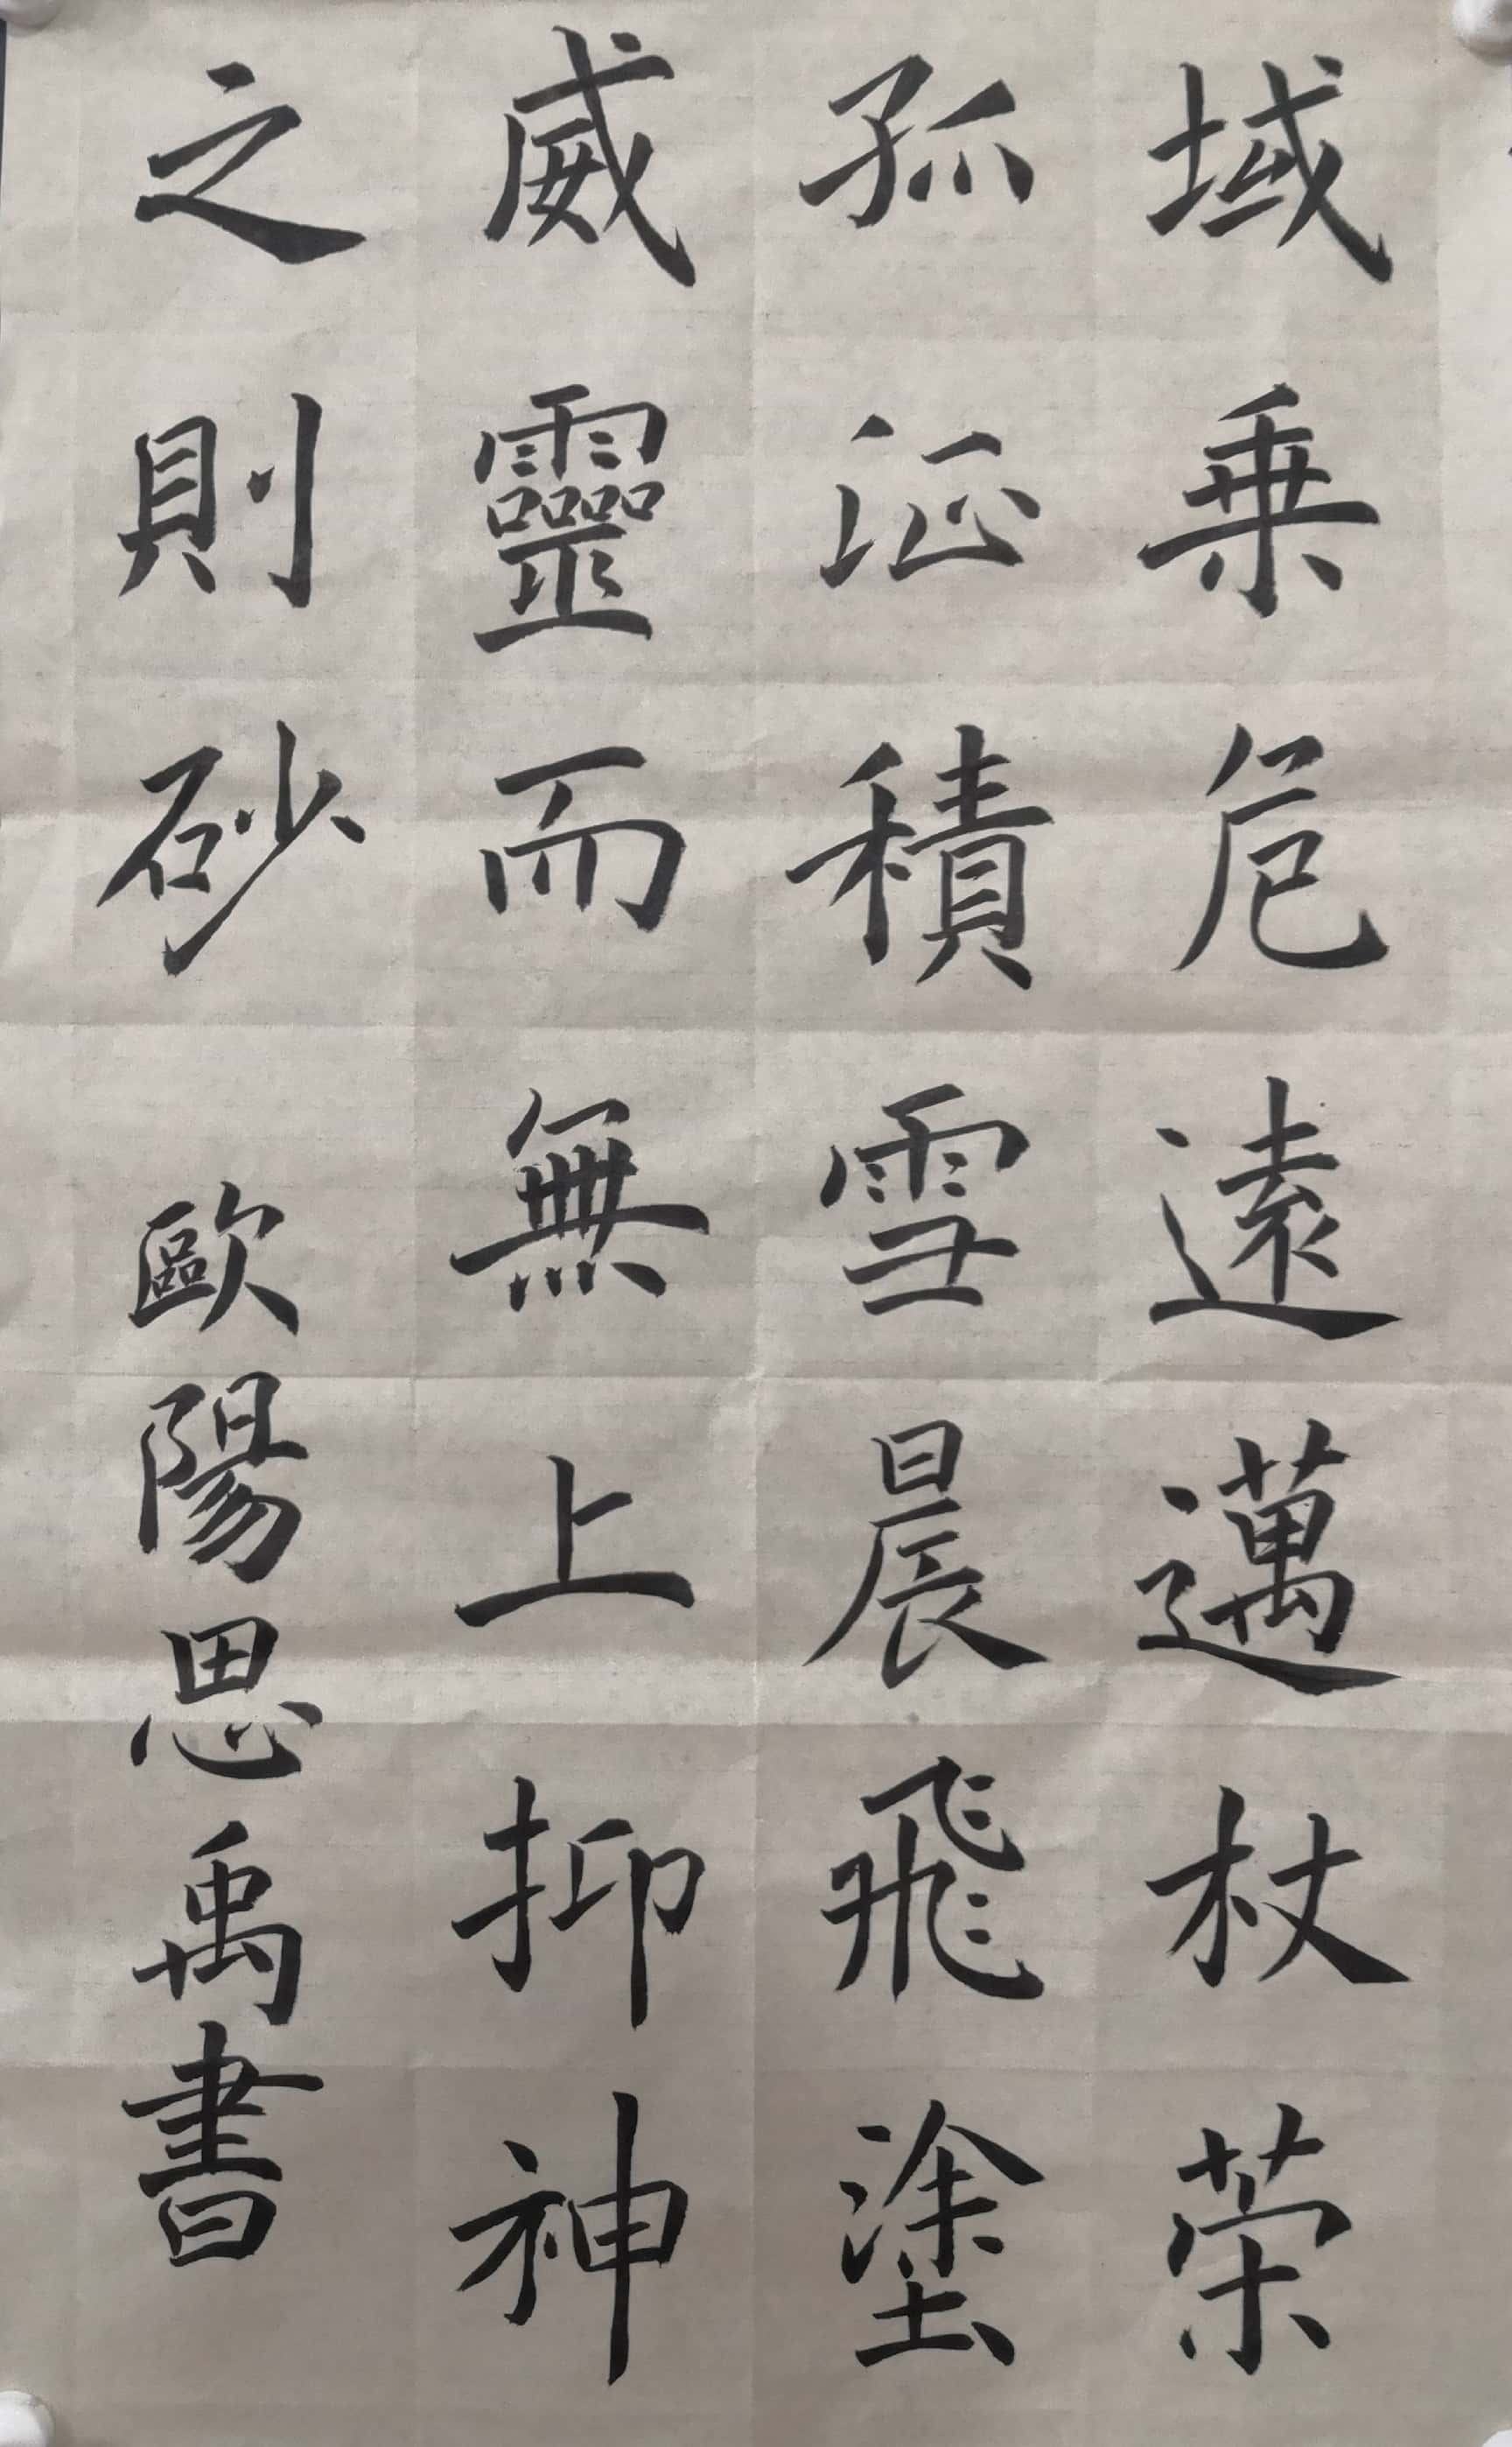 域乗危遠邁杖荣
孤征積雪晨飛塗
威靈而無上抑神
之則砂 歐陽思禹書